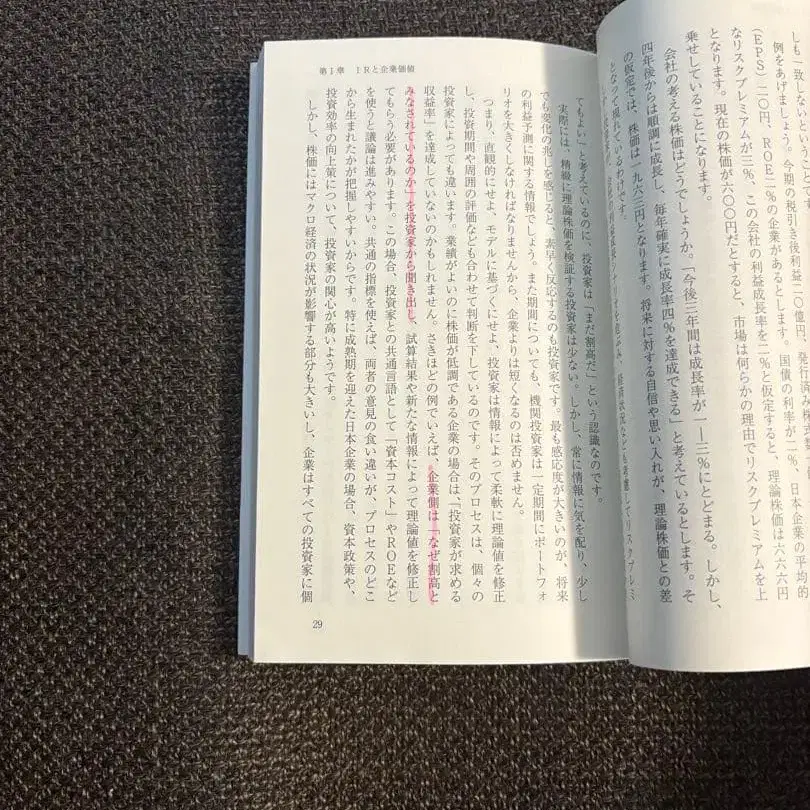 しも一致しないという
例をあげましょう。今期の税引き後利益二〇億円、発行済み株式数
（EPS）二〇円、ROE二％の企業があるとします。国債の利率が二％、日本企業の平均的
なリスクプレミアムが三％、この会社の利益成長率を二％と仮定すると、理論株価は六六六円
となります。現在の株価が六〇〇円だとすると、市場は何らかの理由でリスクプレミアムを上
乗せしていることになります。
会社の考える株価はどうでしょうか。「今後三年間は成長率が一―三％にとどまる。しかし、
四年後からは順調に成長し、毎年確実に成長率四％を達成できる」と考えているとします。そ
の仮定では、株価は一九六三円となります。将来に対する自信や思い入れが、理論株価との差
となって現れているわけです。
経済状況なども考慮してリスクプレミ
第Ⅰ章　IRと企業価値
てもよい」と考えているのに、投資家は「まだ割高だ」という認識なのです。
実際には、精緻に理論株価を検証する投資家は少ない。しかし、常に情報に気を配り、少し
でも変化の兆しを感じると、素早く反応するのも投資家です。最も感応度が大きいのが、将来
の利益予測に関する情報でしょう。また期間についても、機関投資家は一定期間にポートフォ
リオを大きくしなければなりませんから、企業よりは短くなるのは否めません。
つまり、直観的にせよ、モデルに基づくにせよ、投資家は情報によって柔軟に理論値を修正
し、投資期間や周囲の評価なども合わせて判断を下しているのです。そのプロセスは、個々の
投資家によっても違います。業績がよいのに株価が低調である企業の場合は、「投資家が求める
収益率」を達成していないのかもしれません。さきほどの例でいえば、企業側は「なぜ割高と
みなされているのか」を投資家から聞き出し、試算結果や新たな情報によって理論値を修正し
てもらう必要があります。この場合、投資家との共通言語として「資本コスト」やROEなど
を使うと議論は進みやすい。共通の指標を使えば、両者の意見の食い違いが、プロセスのどこ
から生まれたかが把握しやすいからです。特に成熟期を迎えた日本企業の場合、資本政策や、
投資効率の向上策について、投資家の関心が高いようです。
しかし、株価にはマクロ経済の状況が影響する部分も大きいし、企業はすべての投資家に個
29